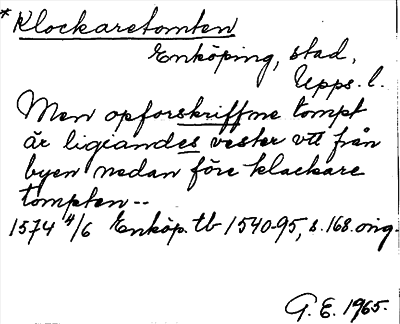 * Klockaretomten
Enköping, stad,
Upps. l.
Men opforskriffne tompt
är ligiandes vester utt från
byen nedan före klackare
tompten --
1574 4/6 Enköp. tb 1540-95, s. 168. orig.
G. E. 1965.